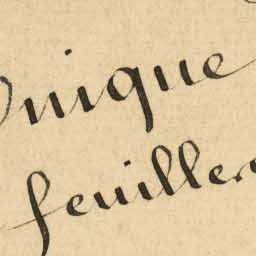 Unique
feuille